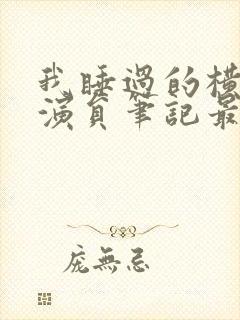 我睡過的橫
演員筆記最
龐無忌